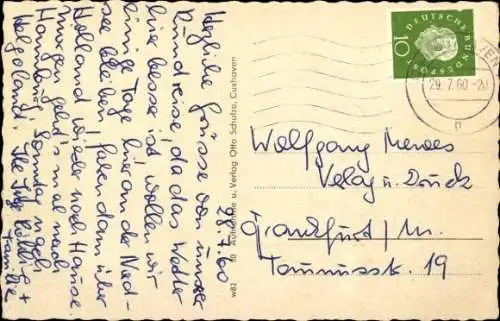 28.7.60
Herzliche Grüsse von unserer
Rundreise, da das Wetter
hier besser ist, wollen wir
einige Tage hier an der Nord-
see bleiben, fahren dann über
Holland wieder nach Hause.
Morgen geht's mal nach
Hamburg, Sonntag nach
Helgoland. Ihr
Familie
W82
Aufnahme u. Verlag Otto Schulze, Cuxhaven
DEUTSCHE BUNDESPOST
10
29.7.60-20
n
Wolfgang
Verlag u. Druck
Frankfurt/M.
Taunusstr. 19